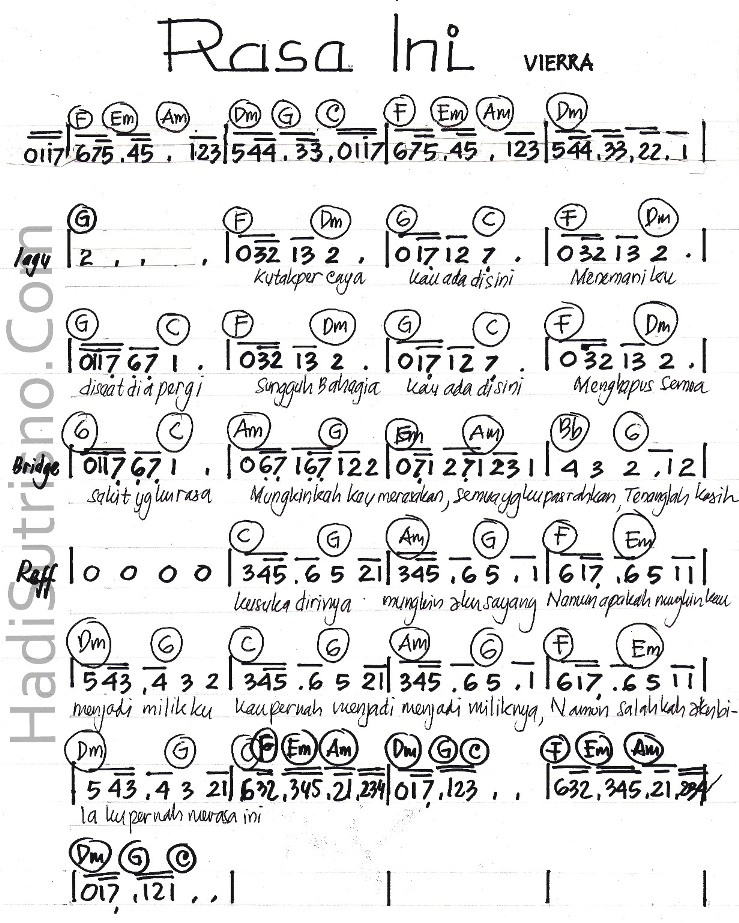 Rasa Ini VIERRA
F Em Am Dm G C F Em Am Dm
0117|675.45 . 123|544.33,0117|675.45 . 123|544.33,22.1|
G F Dm G C F Dm
lagu |2 . . .|032 13 2 .|017 12 7 .|032 13 2 .|
kutakpercaya kau ada disini Menemaniku
G C F Dm G C F Dm
|0117 67 1 .|032 13 2 .|017 12 7 .|032 13 2 .|
disaat dia pergi Sungguh Bahagia kau ada disini Menghapus Semua
G C Am G Em Am Bb G
Bridge |0117 67 1 .|067 167 122|071 271 231|4 3 2 .12|
sakit yg kurasa Mungkinkah kau merasakan, semua yg kupasrahkan, Tenanglah kasih
C G Am G F Em
Reff |0 0 0 0|345 .6 5 21|345 .6 5 .1|617 .6 5 11|
kusuka dirinya mungkin aku sayang Namun apakah mungkin kau
Dm G C G Am G F Em
|5 43 .4 3 2|345 .6 5 21|345 .6 5 .1|617 .6 5 11|
menjadi milikku kau pernah menjadi menjadi miliknya, Namun salahkah aku bi-
Dm G C F Em Am Dm G C F Em Am
|5 43 .4 3 21|632,345,21,234|017,123 . .|632,345,21,234|
la ku pernah merasa ini
Dm G C
|017 .121 . .| | | |
HadiSutrisno.Com